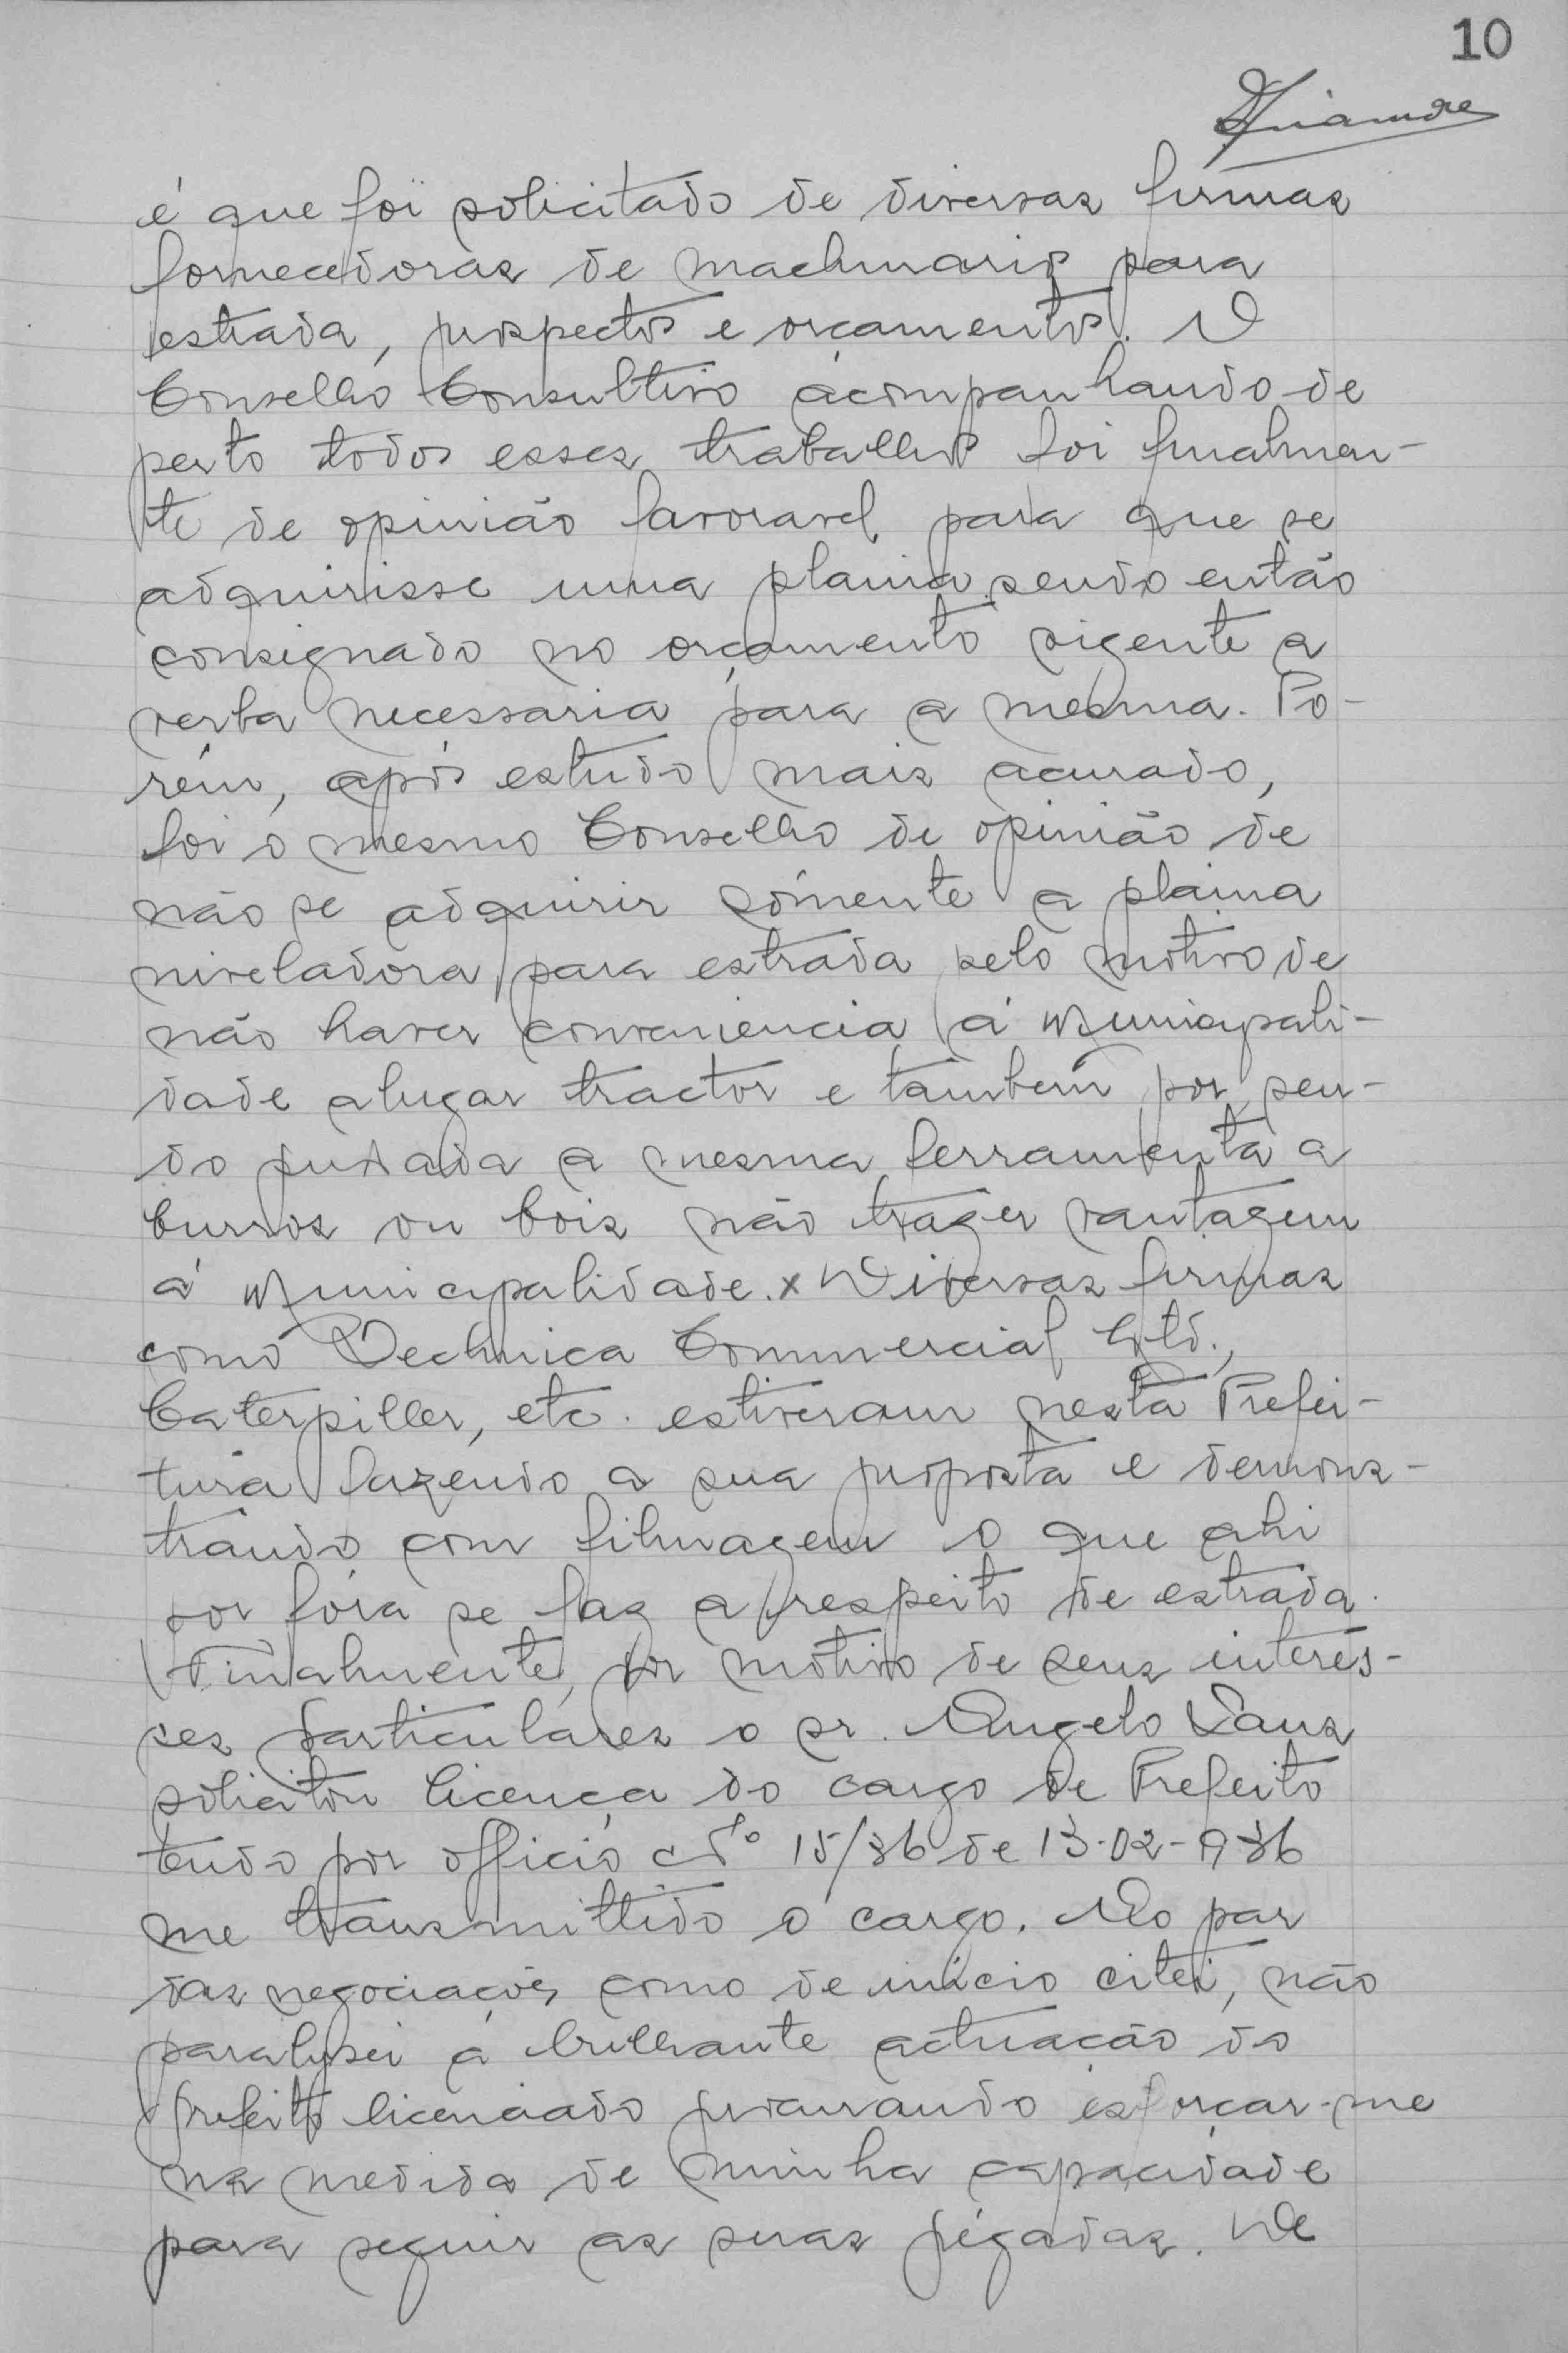 10
é que foi solicitado de diversas firmas
fornecedoras de machinarios para
estrada, prospectos e orçamentos. O
Conselho Consultivo acompanhando de
perto todos esses trabalhos foi finalmen-
te de opinião favoravel para que se
adquirisse uma plaina sendo então
consignado no orçamento vigente a
verba necessaria para a mesma. Po-
rém, após estudo mais acurado,
foi o mesmo Conselho de opinião de
não se adquirir sómente a plaina
niveladora para estrada pelo motivo de
não haver conveniencia á Municipali-
dade alugar tractor e tambem por sen-
do puxada a mesma ferramenta a
burros ou bois não trazer vantagem
á Municipalidade. x Diversas firmas
como Technica Commercial Ltd.,
Caterpiller, etc. estiveram nesta Prefei-
tura fazendo a sua proposta e demons-
trando com filmagem o que ahi
por fóra se faz a respeito de estrada.
Finalmente, por motivo de seus interes-
ses particulares o sr. Angelo Sans
solicitou licença do cargo de Prefeito
tendo por officio Nº 15/36 de 13-02-936
me transmittido o cargo. Ao par
das negociações como de inicio citei, não
paralysei a brilhante actuacão do
prefeito licenciado procurando esforçar-me
na medida de minha capacidade
para seguir as suas pégadas. De